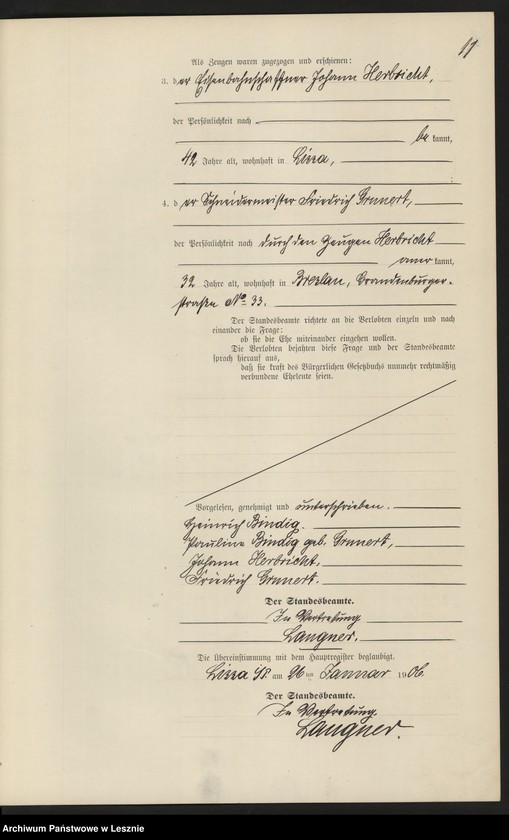 11
Als Zeugen waren zugezogen und erschienen:
3. der Eisenbahnschaffner Johann Herbricht,
der Persönlichkeit nach
be kannt,
42 Jahre alt, wohnhaft in Lissa,
;
4. der Schneidermeister Friedrich Grunert,
der Persönlichkeit nach durch den Zeugen Herbricht
aner kannt,
32 Jahre alt, wohnhaft in Breslau, Brandenburger-
straße No 33.
Der Standesbeamte richtete an die Verlobten einzeln und nach
einander die Frage:
ob sie die Ehe miteinander eingehen wollen.
Die Verlobten bejahten diese Frage und der Standesbeamte
sprach hierauf aus,
daß sie kraft des Bürgerlichen Gesetzbuchs nunmehr rechtmäßig
verbundene Eheleute seien.
Vorgelesen, genehmigt und unterschrieben.
Heinrich Bindig.
Pauline Bindig geb. Grunert,
Johann Herbricht,
Friedrich Grunert.
Der Standesbeamte.
In Vertretung
Langner.
Die Übereinstimmung mit dem Hauptregister beglaubigt.
Lissa am 26 ten Januar 1906.
Der Standesbeamte.
In Vertretung.
Langner.
Archiwum Państwowe w Lesznie